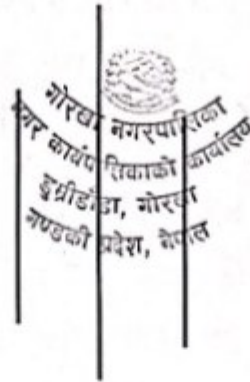 गोरखा नगरपालिका
नगर कार्यपालिकाको कार्यालय
डुम्रीडाँडा, गोरखा
गण्डकी प्रदेश, नेपाल